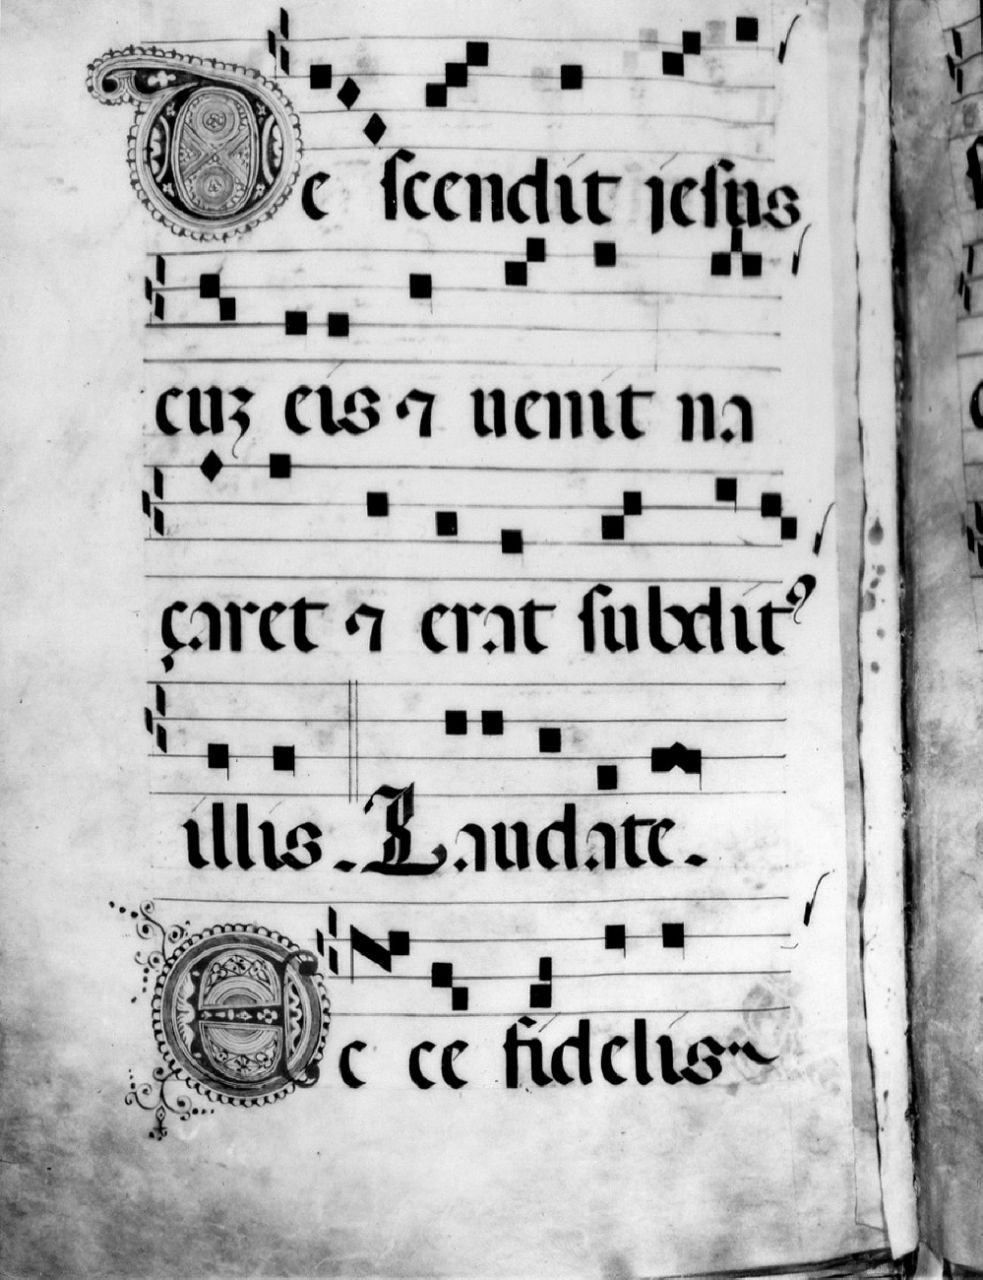 De ſcendit jeſus
cuꝫ eis ⁊ uenit na
çaret ⁊ erat ſubditꝰ
illis. Laudate.
Ec ce fidelis